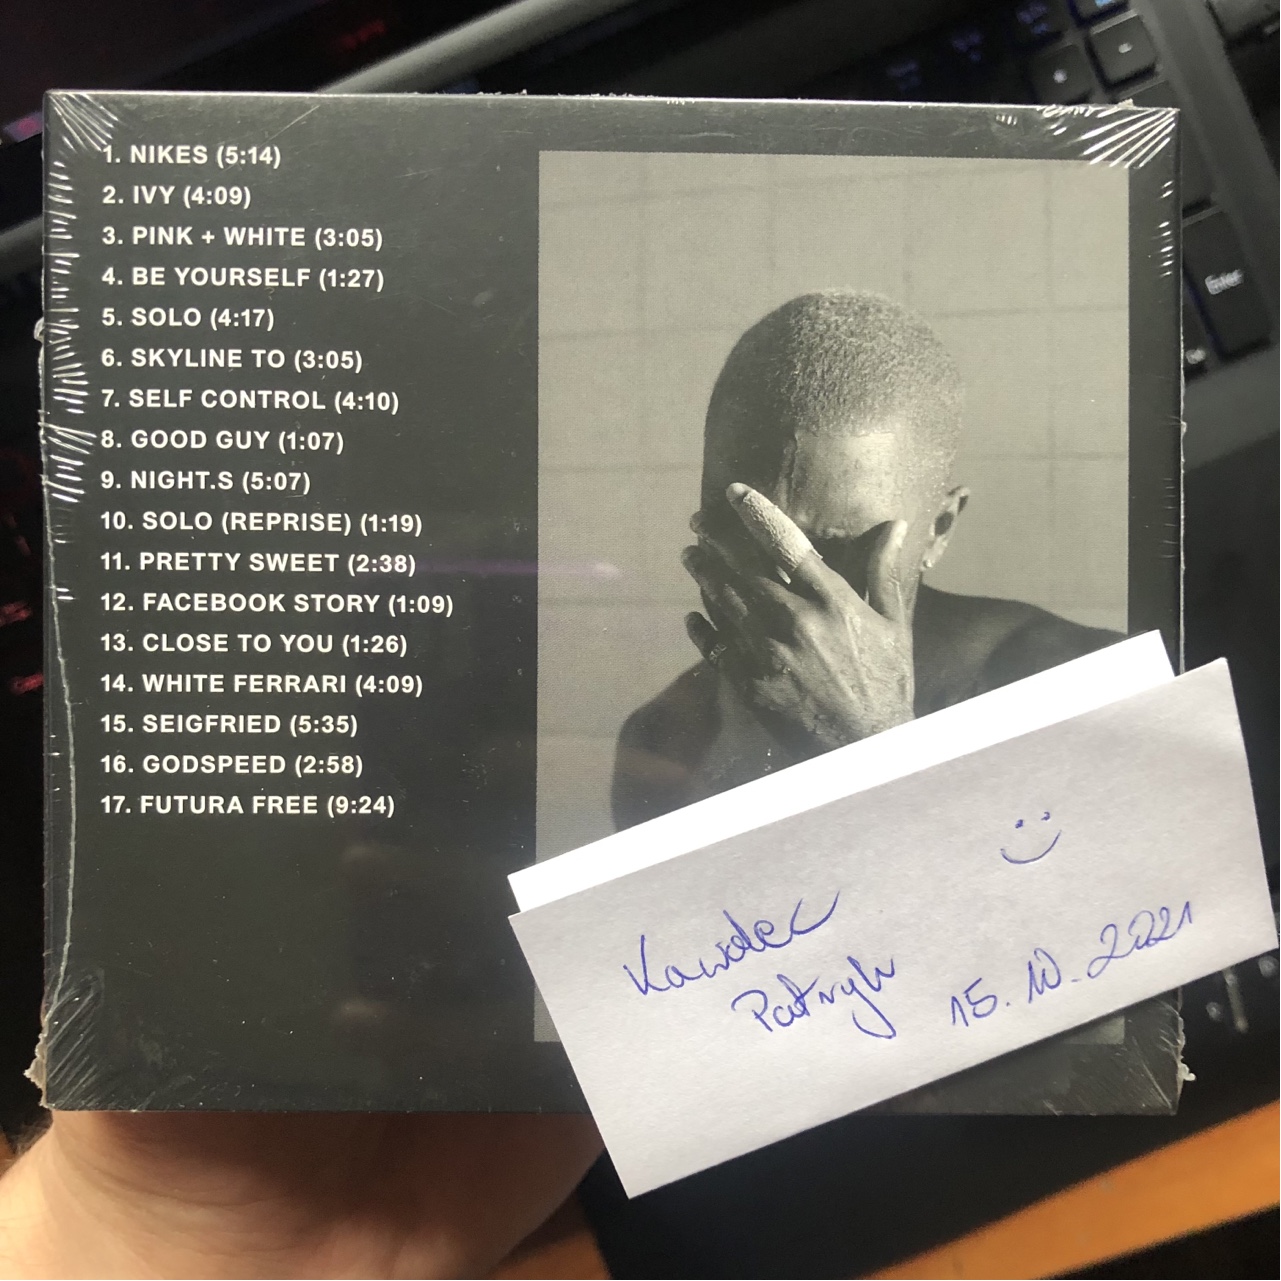 1. NIKES (5:14)
2. IVY (4:09)
3. PINK + WHITE (3:05)
4. BE YOURSELF (1:27)
5. SOLO (4:17)
6. SKYLINE TO (3:05)
7. SELF CONTROL (4:10)
8. GOOD GUY (1:07)
9. NIGHT.S (5:07)
10. SOLO (REPRISE) (1:19)
11. PRETTY SWEET (2:38)
12. FACEBOOK STORY (1:09)
13. CLOSE TO YOU (1:26)
14. WHITE FERRARI (4:09)
15. SEIGFRIED (5:35)
16. GODSPEED (2:58)
17. FUTURA FREE (9:24)
Kawalec
Patryk
15.10.2021
Enter